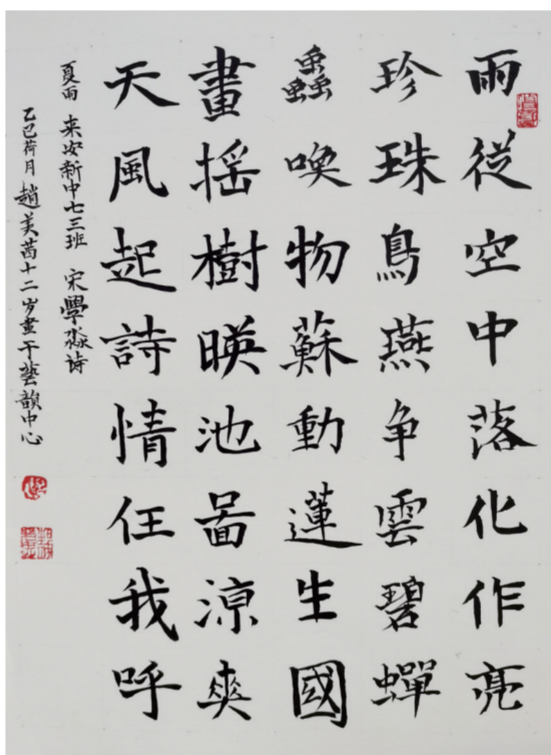 雨從空中落化作亮
珍珠鳥燕争雲碧蟬
蟲喚物蘇動蓮生國
畫摇樹暎池啚涼爽
天風起詩情任我呼
夏雨 来安新中七三班 宋學淼诗
乙巳荷月趙美茜十二岁書于藝韻中心